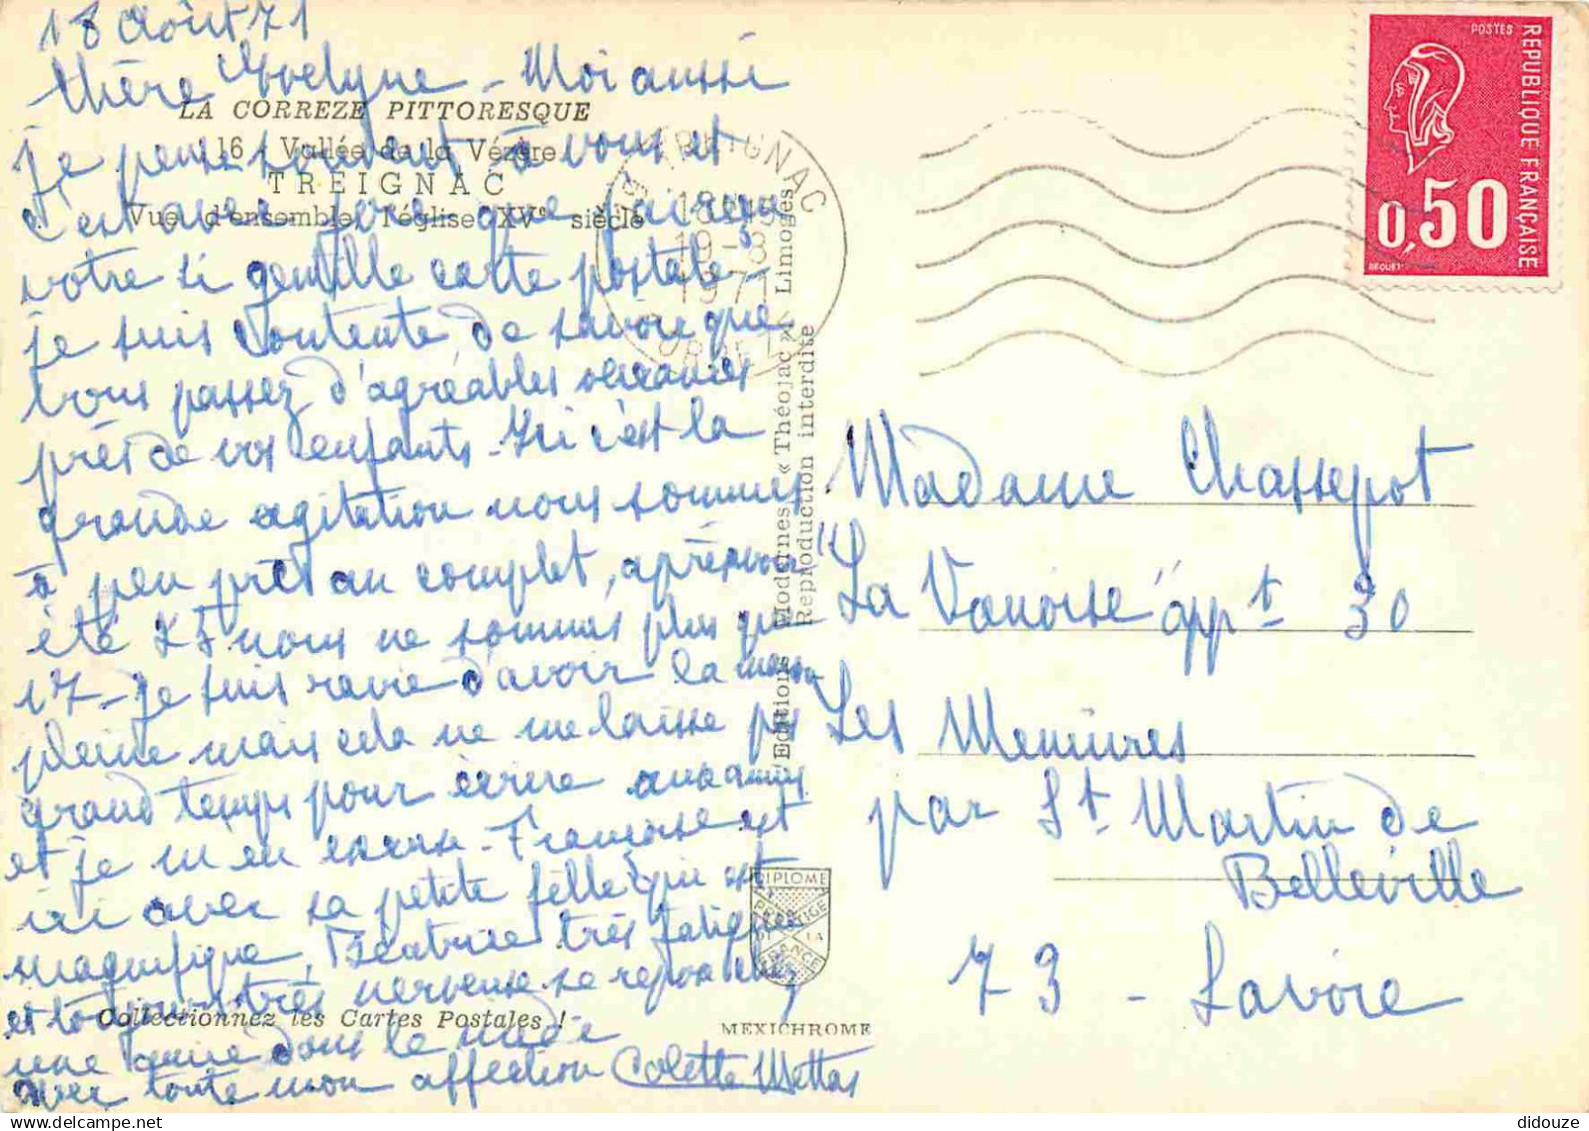 18 Août 71
Chère Evelyne - Moi aussi
LA CORREZE PITTORESQUE
116 - Vallée de la Vézère
TREIGNAC
Vue d'ensemble, l'église XVe siècle
je pense souvent à vous et
c'est avec joie que j'ai reçu
votre si gentille carte postale -
je suis contente de savoir que
vous passez d'agréables vacances
près de vos enfants - Ici c'est la
grande agitation nous sommes
à peu près au complet, après avoir
été 25 nous ne sommes plus que
17 - je suis ravie d'avoir la maison
pleine mais cela ne me laisse pas
grand temps pour écrire aux amis
et je m'en excuse - Françoise est
ici avec sa petite fille qui est
magnifique, Béatrice très fatiguée
et toujours très nerveuse se repose chez
une amie dans le midi
avec toute mon affection Colette
Collectionnez les Cartes Postales !
Editions Modernes « Théojac » Limoges
Reproduction interdite
DIPLOME
PRESTIGE
DE LA
FRANCE
MEXICHROME
TREIGNAC
18H
19-8
1971
CORREZE
POSTES
REPUBLIQUE FRANÇAISE
0,50
BEQUET
Madame Chassepot
"La Vanoise" appt 30
Les Menuires
par St Martin de
Belleville
73 - Savoie
didouze